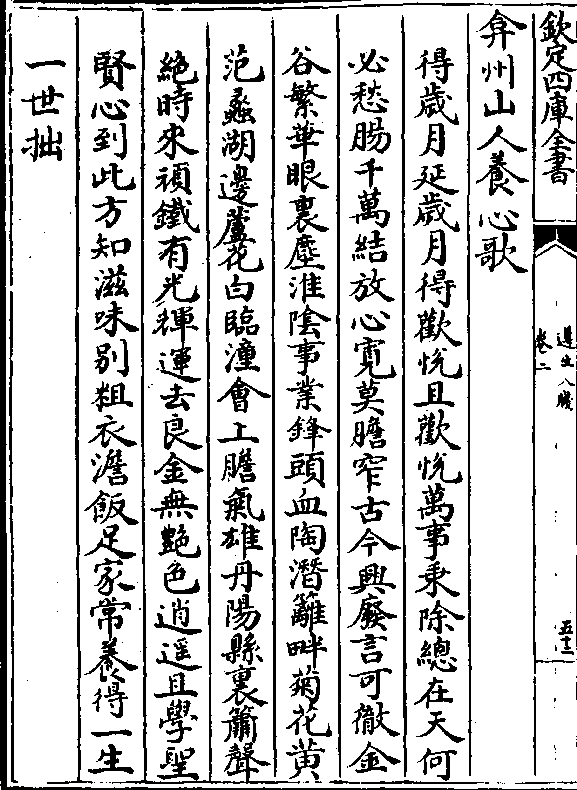 欽定四庫全書
遵生八牋
卷二
弇州山人養心歌
得歲月延歲月得歡悅且歡悅萬事乗除總在天何
必愁腸千萬結放心寛莫膽窄古今興廢言可徹金
谷繁華眼裏塵淮隂事業鋒頭血陶潛籬畔菊花黄
范蠡湖邊蘆花白臨潼會上膽氣雄丹陽縣裏簫聲
絶時來頑鐵有光輝運去良金無艶色逍遥且學聖
賢心到此方知滋味别粗衣澹飯足家常養得一生
一世拙